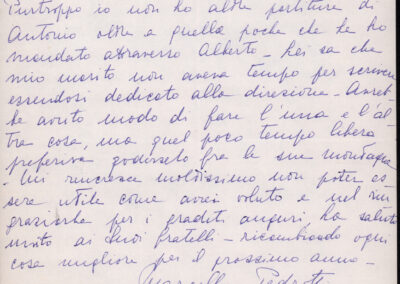 Purtroppo io non ho altre partiture di
Antonio oltre a quelle poche che le ho
mandato attraverso Alberto - Lei sa che
mio marito non aveva tempo per scrivere
essendosi dedicato alla direzione - Avreb-
be avuto modo di fare l'una e l'al-
tra cosa, ma quel poco tempo libero
preferiva goderselo fra le sue montagne
- Mi rincresce moltissimo non poter es
sere utile come avrei voluto e nel rin
graziarla per i graditi auguri, la saluto
unito ai Suoi fratelli - ricambiando ogni
cosa migliore per il prossimo anno -
Pedrotti